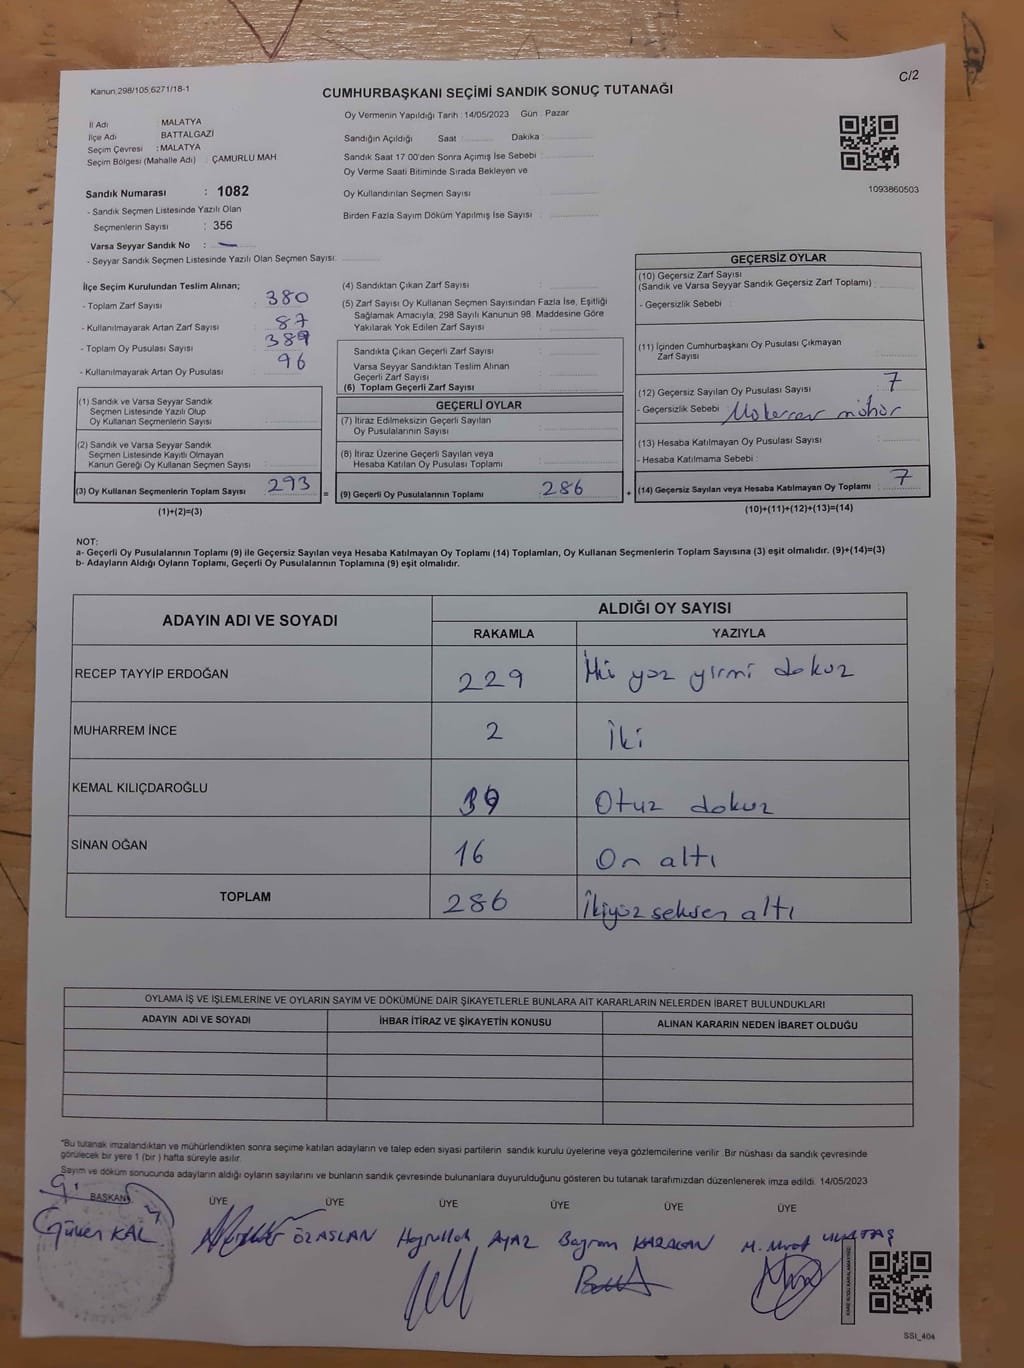 C/2
Kanun,298/105,6271/18-1
CUMHURBAŞKANI SEÇİMİ SANDIK SONUÇ TUTANAĞI
İl Adı : MALATYA
İlçe Adı : BATTALGAZİ
Seçim Çevresi : MALATYA
Seçim Bölgesi (Mahalle Adı) : ÇAMURLU MAH.
Sandık Numarası : 1082
- Sandık Seçmen Listesinde Yazılı Olan
Seçmenlerin Sayısı : 356
Varsa Seyyar Sandık No : —
- Seyyar Sandık Seçmen Listesinde Yazılı Olan Seçmen Sayısı:
Oy Vermenin Yapıldığı Tarih : 14/05/2023 Gün : Pazar
Sandığın Açıldığı Saat : Dakika :
Sandık Saat 17:00'den Sonra Açılmış İse Sebebi :
Oy Verme Saati Bitiminde Sırada Bekleyen ve
Oy Kullandırılan Seçmen Sayısı :
Birden Fazla Sayım Döküm Yapılmış İse Sayısı :
1093860503
İlçe Seçim Kurulundan Teslim Alınan;
- Toplam Zarf Sayısı : 380
- Kullanılmayarak Artan Zarf Sayısı : 87
- Toplam Oy Pusulası Sayısı : 389
- Kullanılmayarak Artan Oy Pusulası : 96
(1) Sandık ve Varsa Seyyar Sandık
Seçmen Listesinde Yazılı Olup
Oy Kullanan Seçmenlerin Sayısı :
(2) Sandık ve Varsa Seyyar Sandık
Seçmen Listesinde Kayıtlı Olmayan
Kanun Gereği Oy Kullanan Seçmen Sayısı :
(3) Oy Kullanan Seçmenlerin Toplam Sayısı : 293
(1)+(2)=(3)
(4) Sandıktan Çıkan Zarf Sayısı :
(5) Zarf Sayısı Oy Kullanan Seçmen Sayısından Fazla İse, Eşitliği
Sağlamak Amacıyla; 298 Sayılı Kanunun 98. Maddesine Göre
Yakılarak Yok Edilen Zarf Sayısı :
Sandıkta Çıkan Geçerli Zarf Sayısı :
Varsa Seyyar Sandıktan Teslim Alınan
Geçerli Zarf Sayısı :
(6) Toplam Geçerli Zarf Sayısı :
GEÇERLİ OYLAR
(7) İtiraz Edilmeksizin Geçerli Sayılan
Oy Pusulalarının Sayısı :
(8) İtiraz Üzerine Geçerli Sayılan veya
Hesaba Katılan Oy Pusulası Toplamı :
= (9) Geçerli Oy Pusulalarının Toplamı : 286 +
GEÇERSİZ OYLAR
(10) Geçersiz Zarf Sayısı
(Sandık ve Varsa Seyyar Sandık Geçersiz Zarf Toplamı) :
- Geçersizlik Sebebi :
(11) İçinden Cumhurbaşkanı Oy Pusulası Çıkmayan
Zarf Sayısı :
(12) Geçersiz Sayılan Oy Pusulası Sayısı : 7
- Geçersizlik Sebebi : Mükerrer mühür
(13) Hesaba Katılmayan Oy Pusulası Sayısı :
- Hesaba Katılmama Sebebi :
(14) Geçersiz Sayılan veya Hesaba Katılmayan Oy Toplamı : 7
(10)+(11)+(12)+(13)=(14)
NOT:
a- Geçerli Oy Pusulalarının Toplamı (9) ile Geçersiz Sayılan veya Hesaba Katılmayan Oy Toplamı (14) Toplamları, Oy Kullanan Seçmenlerin Toplam Sayısına (3) eşit olmalıdır. (9)+(14)=(3)
b- Adayların Aldığı Oyların Toplamı, Geçerli Oy Pusulalarının Toplamına (9) eşit olmalıdır.
ADAYIN ADI VE SOYADI ALDIĞI OY SAYISI
RAKAMLA YAZIYLA
RECEP TAYYİP ERDOĞAN 229 İki yüz yirmi dokuz
MUHARREM İNCE 2 İki
KEMAL KILIÇDAROĞLU 39 Otuz dokuz
SİNAN OĞAN 16 On altı
TOPLAM 286 İkiyüz seksen altı
OYLAMA İŞ VE İŞLEMLERİNE VE OYLARIN SAYIM VE DÖKÜMÜNE DAİR ŞİKAYETLERLE BUNLARA AİT KARARLARIN NELERDEN İBARET BULUNDUKLARI
ADAYIN ADI VE SOYADI İHBAR İTİRAZ VE ŞİKAYETİN KONUSU ALINAN KARARIN NEDEN İBARET OLDUĞU
*Bu tutanak imzalandıktan ve mühürlendikten sonra seçime katılan adayların ve talep eden siyasi partilerin sandık kurulu üyelerine veya gözlemcilerine verilir. Bir nüshası da sandık çevresinde
görülecek bir yere 1 (bir) hafta süreyle asılır.
Sayım ve döküm sonucunda adayların aldığı oyların sayılarını ve bunların sandık çevresinde bulunanlara duyurulduğunu gösteren bu tutanak tarafımızdan düzenlenerek imza edildi. 14/05/2023
BAŞKAN ÜYE ÜYE ÜYE ÜYE ÜYE ÜYE
Güven KAL ÖZASLAN Hayrullah AYAZ Bayram KARACAN M. Murat ULUTAŞ
SSİ_404